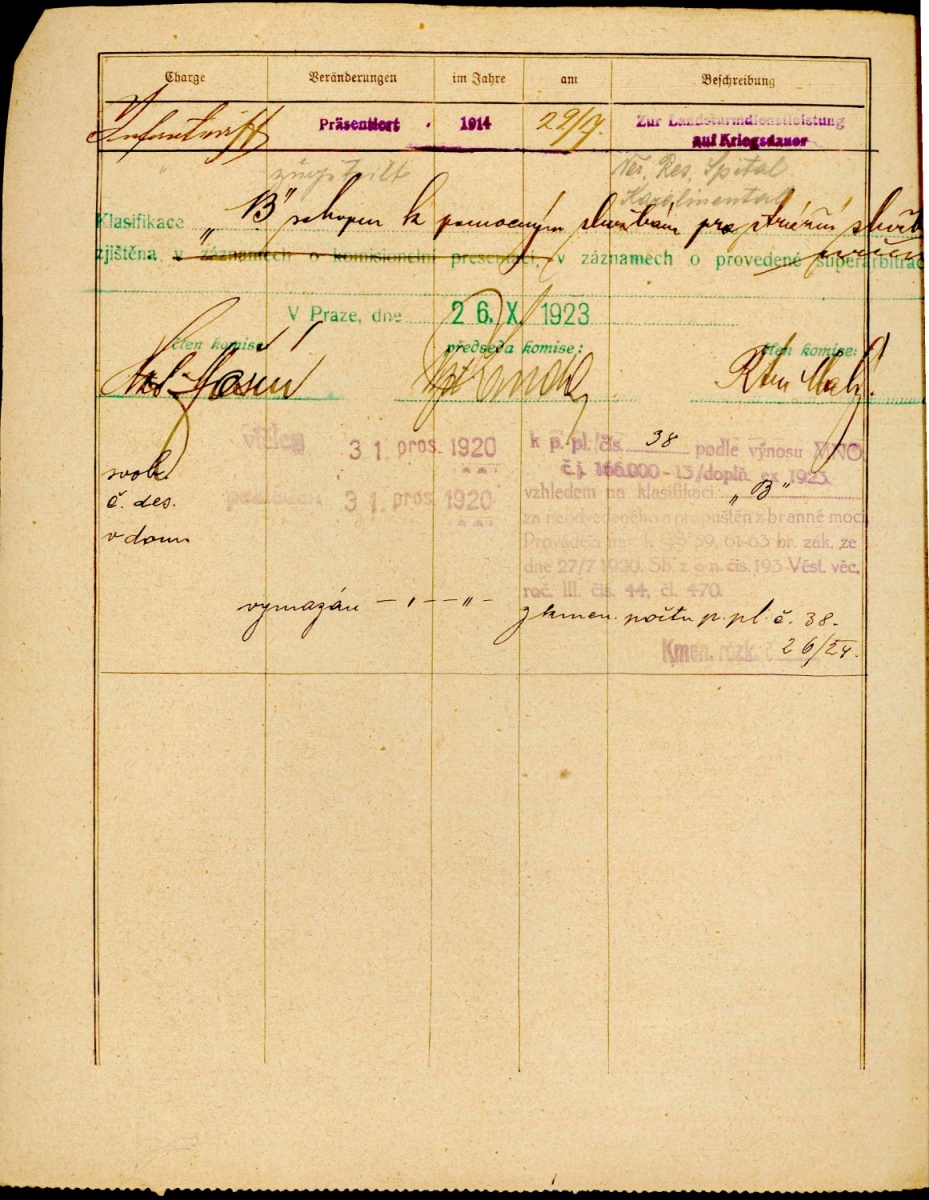 Charge Veränderungen im Jahre am Beschreibung
Präsentiert 1914 Zur Landsturmdienstleistung
auf Kriegsdauer
zugeteilt Res. Spital
Karolinental
Klasifikace „B" schopen k pomocným službám pro
zjištěna, v záznamech o komisionelní presentaci, v záznamech o provedené superarbitrac
V Praze, dne 26. X. 1923
člen komise: předseda komise: člen komise:
vtělen 31. pros. 1920 k p. pl. čís. 38 podle výnosu MNO.
č. j. 166.000 - 13/doplň. ex 1923
svob. vzhledem na klasifikaci „B"
č. des. 31. pros. 1920
za neodvedeného a propuštěn z branné moci
v dom Prováděcí nař. k §§ 59, 61-63 br. zák. ze
dne 27/7 1920. Sb. z. a n. čís. 193 Věst. věc.
roč. III. čís. 44, čl. 470.
vymazán — „ — „ — z kmen. počtu p. pl. č. 38.
Kmen. rozk. č. 26/24.